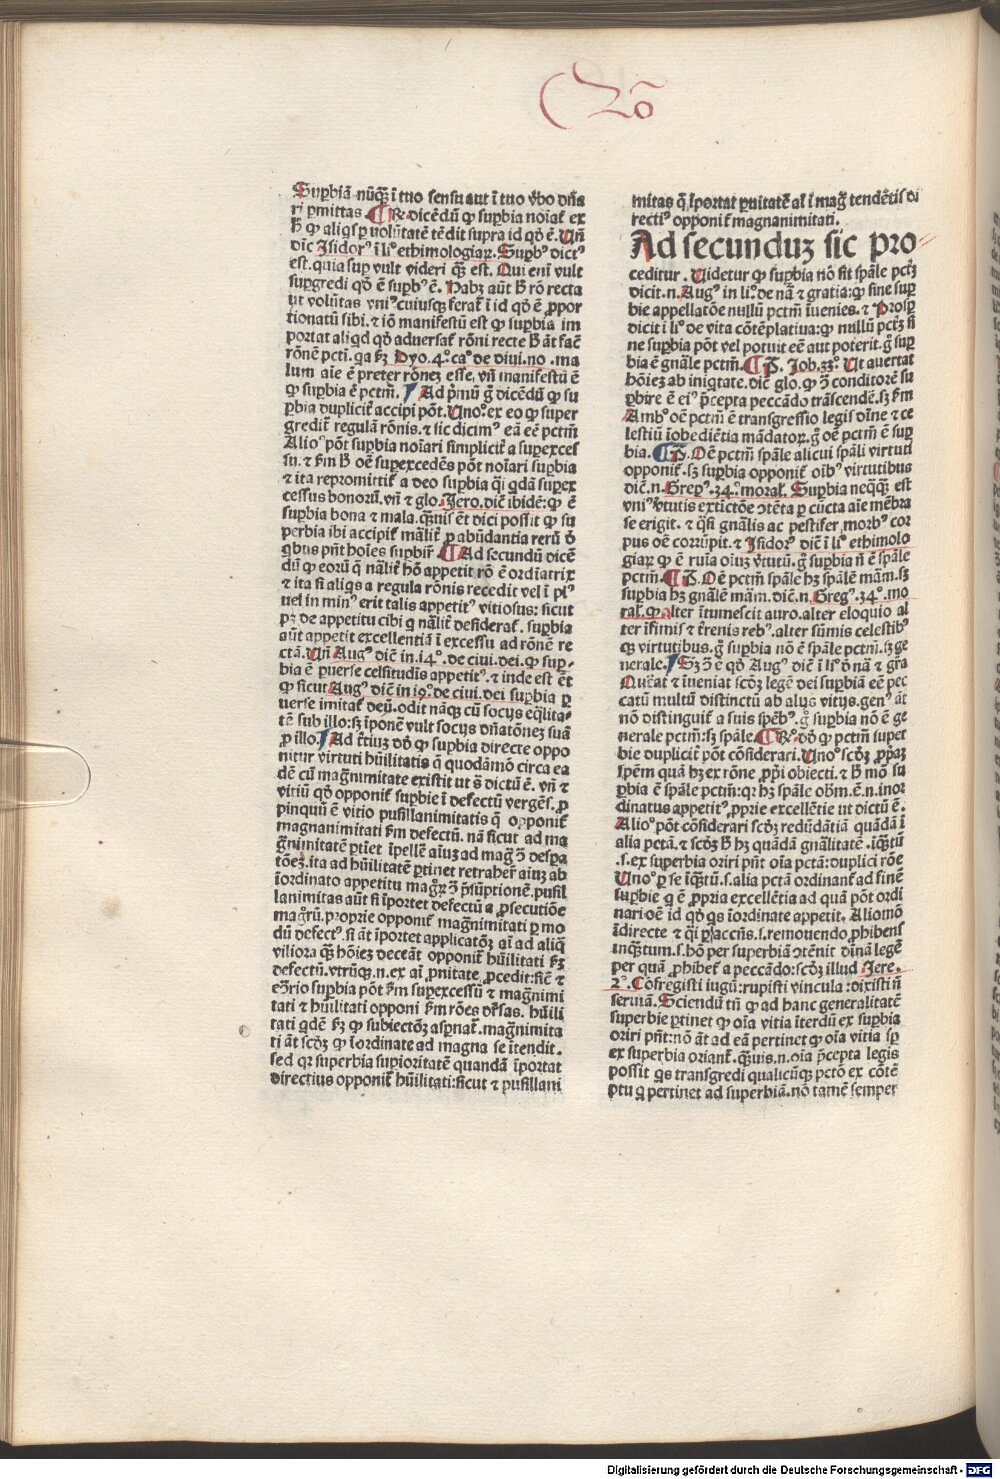 Suꝑbiã nũq̃ȝ ĩ tuo sensu aut ĩ tuo v̓bo dñã
ri ꝑmittas. ¶ R̃. dicẽdũ ꝙ suꝑbia noĩat̃ ex
h̓ ꝙ aliqs ꝑ volũtatẽ tẽdit supra id qd̓ ẽ. Vñ
dic̃ Isidorꝰ ĩ liº ethimologiaꝝ. Suꝑbꝰ dictꝰ
est. quia suꝑ vult videri q̃ȝ est. Qui eni vult
suꝑgredi qd̓ ẽ suꝑbꝰ ẽ. Habȝ aũt h̓ rõ recta
ut volũtas vniꝰcuiusqȝ ferat̃ ĩ id qd̓ ẽ ꝓpor
tionatũ sibi. ⁊ iõ manifestũ est ꝙ suꝑbia im
portat aliqd qd̓ aduersat̃ rõni recte h̓ aũt fac̃
rõnẽ pctĩ. qa ẜm Dyo. 4.º caº de diui. no. ma
lum aĩe ẽ preter rõneȝ esse. vñ manifestũ ẽ
ꝙ suꝑbia ẽ pctm̃. Ad p̓mũ g̓ dicẽdũ ꝙ su
ꝑbia duplicit̃ accipi põt. Vnoº ex eo ꝙ super
gredit̃ regulã rõnis. ⁊ sic dicimꝰ eã eẽ pctm̃
Alioº põt suꝑbia noĩari simplicit̃ a superexces
su. ⁊ ẜm h̓ oẽ suꝑexcedẽs põt noĩari suꝑbia
⁊ ita repromittit̃ a deo suꝑbia q̃i qdã suꝑex
cessus bonoꝝ. vñ ⁊ glo. Jero. dic̃ ibidẽ: ꝙ ẽ
suꝑbia bona ⁊ mala. q̃ȝuis ẽt dici possit ꝙ su
perbia ibi accipit̃ mãlit̃ ꝑ abũdantia rerũ d̓
qbus pñt hoĩes suꝑbir̃. ¶ Ad secundũ dicẽ
dũ ꝙ eoꝝ q̃ nãlit̃ hõ appetit rõ ẽ ordĩatrix
⁊ ita si aliqs a regula rõnis recedit vel ĩ plꝰ
uel in minꝰ erit talis appetitꝰ vitiosus: sicut
pȝ de appetitu cibi q nãlit̃ desiderat̃. suꝑbia
aũt appetit excellentiã ĩ excessu ad rõnẽ re
ctã. Vñ Augꝰ dic̃ in. 14º. de ciui. dei. ꝙ suꝑ-
bia ẽ ꝑuerse celsitudis appetitꝰ. ⁊ inde est ẽt
ꝙ sicut Augꝰ dic̃ in 19º de ciui. dei suꝑbia ꝑ
uerse imitat̃ deũ. odit nãqȝ cũ socijs eq̃lita-
tẽ sub illo: sȝ ĩponẽ vult socijs dñatõneȝ suã
ꝓ illo. Ad t̓tiuȝ dõ ꝙ suꝑbia directe oppo
nitur virtuti hũilitatis q̃ quodãmõ circa ea
dẽ cũ magñimitate existit ut s̃ dictũ ẽ. vñ ⁊
vitiũ qd̓ opponit̃ suꝑbie ĩ defectũ vergẽs. ꝓ
pinquũ ẽ vitio pusillanimitatis q̃ opponit̃
magnanimitati ẜm defectũ. nã sicut ad ma
g̃nimitatẽ ꝑtiet ĩpellẽ aĩuȝ ad mag̃ ↄ̃ despa
tõeȝ. ita ad hũilitatẽ ꝑtinet retraher̃ aĩuȝ ab
ĩordinato appetitu mag̃ꝝ ↄ̃ p̃sũptionẽ. pusil
lanimitas aũt si ĩportet defectũ a ꝓsecutiõe
mag̃ꝝ. proprie opponit̃ mag̃nimitati ꝑ mo
dũ defectꝰ. si ãt ĩportet applicatõȝ aĩ ad aliq̃
viliora q̃ȝ hõieȝ deceãt opponit̃ hũilitati ẜm
defectũ. vtrũqȝ. n. ex aĩ ꝑnitate ꝓcedit: sic̃ ⁊
eↄ̃rio suꝑbia põt ẜm suꝑexcessũ ⁊ mag̃nimi
tati ⁊ hũilitati opponi ẜm rões d̓r̃sas. hũili
tati qdẽ ẜm ꝙ subiectõȝ asꝑnat̃. mag̃nimita
ti ãt scd̓ȝ ꝙ ĩordinate ad magna se ĩtendit.
sed qꝛ superbia suꝑioritatẽ quandã ĩportat
directius opponit̃ hũilitati: sicut ⁊ pusillani
mitas q̃ ĩportat ꝑuitatẽ aĩ ĩ mag̃ tendẽtis di
rectiꝰ opponit̃ magnanimitati.
Ad secunduȝ sic pro
ceditur. Videtur ꝙ suꝑbia nõ sit spãle pct̃ȝ
dicit. n. Augꝰ in liº de nã ⁊ gratia: ꝙ sine suꝑ
bie appellatõe nullũ pctm̃ ĩuenies. ⁊ Prosꝑ
dicit ĩ liº de vita cõtẽplatiua: ꝙ nullũ pct̃ȝ si
ne suꝑbia põt vel potuit eẽ aut poterit. g̓ suꝑ
bia ẽ gñale pctm̃. ¶ P̃. Job. 33º Ut auertat
hõieȝ ab iniqtate. dic̃ glo. ꝙ ↄ̃ conditorẽ su
ꝑbire ẽ eiꝰ p̃cepta peccãdo trãscendẽ. sȝ ẜm
Ambº oẽ pctm̃ ẽ transgressio legis dĩne ⁊ ce
lestiũ ĩobediẽtia mãdatoꝝ. g̓ oẽ pctm̃ ẽ suꝑ
bia. ¶ P̃. Oẽ pctm̃ spãle alicui spãli virtuti
opponit̃. sȝ suꝑbia opponit̃ oĩbꝰ virtutibus
dic̃. n. Gregꝰ. 34º. moral̃. Suꝑbia neq̃q̃ȝ est
vniꝰ v̓tutis extĩctõe ↄtẽta ꝑ cũcta aĩe mẽbra
se erigit. ⁊ q̃si gñalis ac pestifer morbꝰ cor
pus oẽ corrũpit. ⁊ Isidorꝰ dic̃ ĩ liº ethimolo
giaꝝ ꝙ ẽ ruĩa oĩuȝ v̓tutũ. g̓ suꝑbia ñ ẽ spãle
pctm̃. ¶ P̃. Oẽ pctm̃ spãle hȝ spãlẽ mãm. sȝ
suꝑbia hȝ gñalẽ mãm. dic̃. n. Gregꝰ. 34º. mo
ral̃. ꝙ alter ĩtumescit auro. alter eloquio al
ter ĩfimis ⁊ t̓renis rebꝰ. alter sũmis celestibꝰ
qȝ virtutibus. g̓ suꝑbia nõ ẽ spãle pctm̃. sȝ ge
nerale. Sȝ ↄ̃ ẽ qd̓ Augꝰ dic̃ ĩ liº d̓ nã ⁊ gr̃a
Querat ⁊ ĩueniat scd̓ȝ legẽ dei suꝑbiã eẽ pec
catũ multũ distinctũ ab alijs vitijs. genꝰ ãt
nõ distinguit̃ a suis spẽbꝰ. g̓ suꝑbia nõ ẽ ge
nerale pctm̃: sȝ spãle. ¶ R̃º. dõ ꝙ pctm̃ suꝑer
bie duplicit̃ põt cõsiderari. Vnoº scd̓ȝ ꝓp̓aȝ
spẽm quã hȝ ex rõne ꝓp̓i obiecti. ⁊ h̓ mõ su
ꝑbia ẽ spãle pctm̃: qꝛ hȝ spãle obm̃. ẽ. n. inor
dinatus appetitꝰ ꝓprie excellẽtie ut dictũ ẽ.
Alioº põt cõsiderari scd̓ȝ redũdãtiã quãdã ĩ
alia pctã. ⁊ scd̓ȝ h̓ hȝ quãdã gñalitatẽ. ĩq̃ȝtũ
.s. ex superbia oriri pñt oĩa pctã: duplici rõe
Vnoº ꝑ se ĩq̃ȝtũ. s. alia pctã ordinant̃ ad finẽ
suꝑbie q ẽ ꝓpria excellẽtia ad quã põt ordi
nari oẽ id qd̓ qs ĩordinate appetit. Aliomõ
ĩdirecte ⁊ q̃i ꝑ accñs. s. remouendo ꝓhibens
inq̃ȝtum. s. hõ per superbiã ↄtẽnit diuinã legẽ
per quã ꝓhibet̃ a peccãdo: scd̓ȝ illud Jere.
2º. Cõfregisti iugũ: rupisti vincula: dixisti ñ
seruiã. Sciendũ tñ ꝙ ad hanc generalitatẽ
superbie ꝑtinet ꝙ oĩa vitia ĩterdũ ex suꝑbia
oriri pñt: nõ ãt ad eã pertinet ꝙ oĩa vitia sꝑ
ex superbia oriant̃. q̃ȝuis. n. oĩa p̃cepta legis
possit qs transgredi qualicũqȝ pctõ ex cõtẽ
ptu q pertinet ad superbiã. nõ tamẽ semper
Digitalisierung gefördert durch die Deutsche Forschungsgemeinschaft - DFG